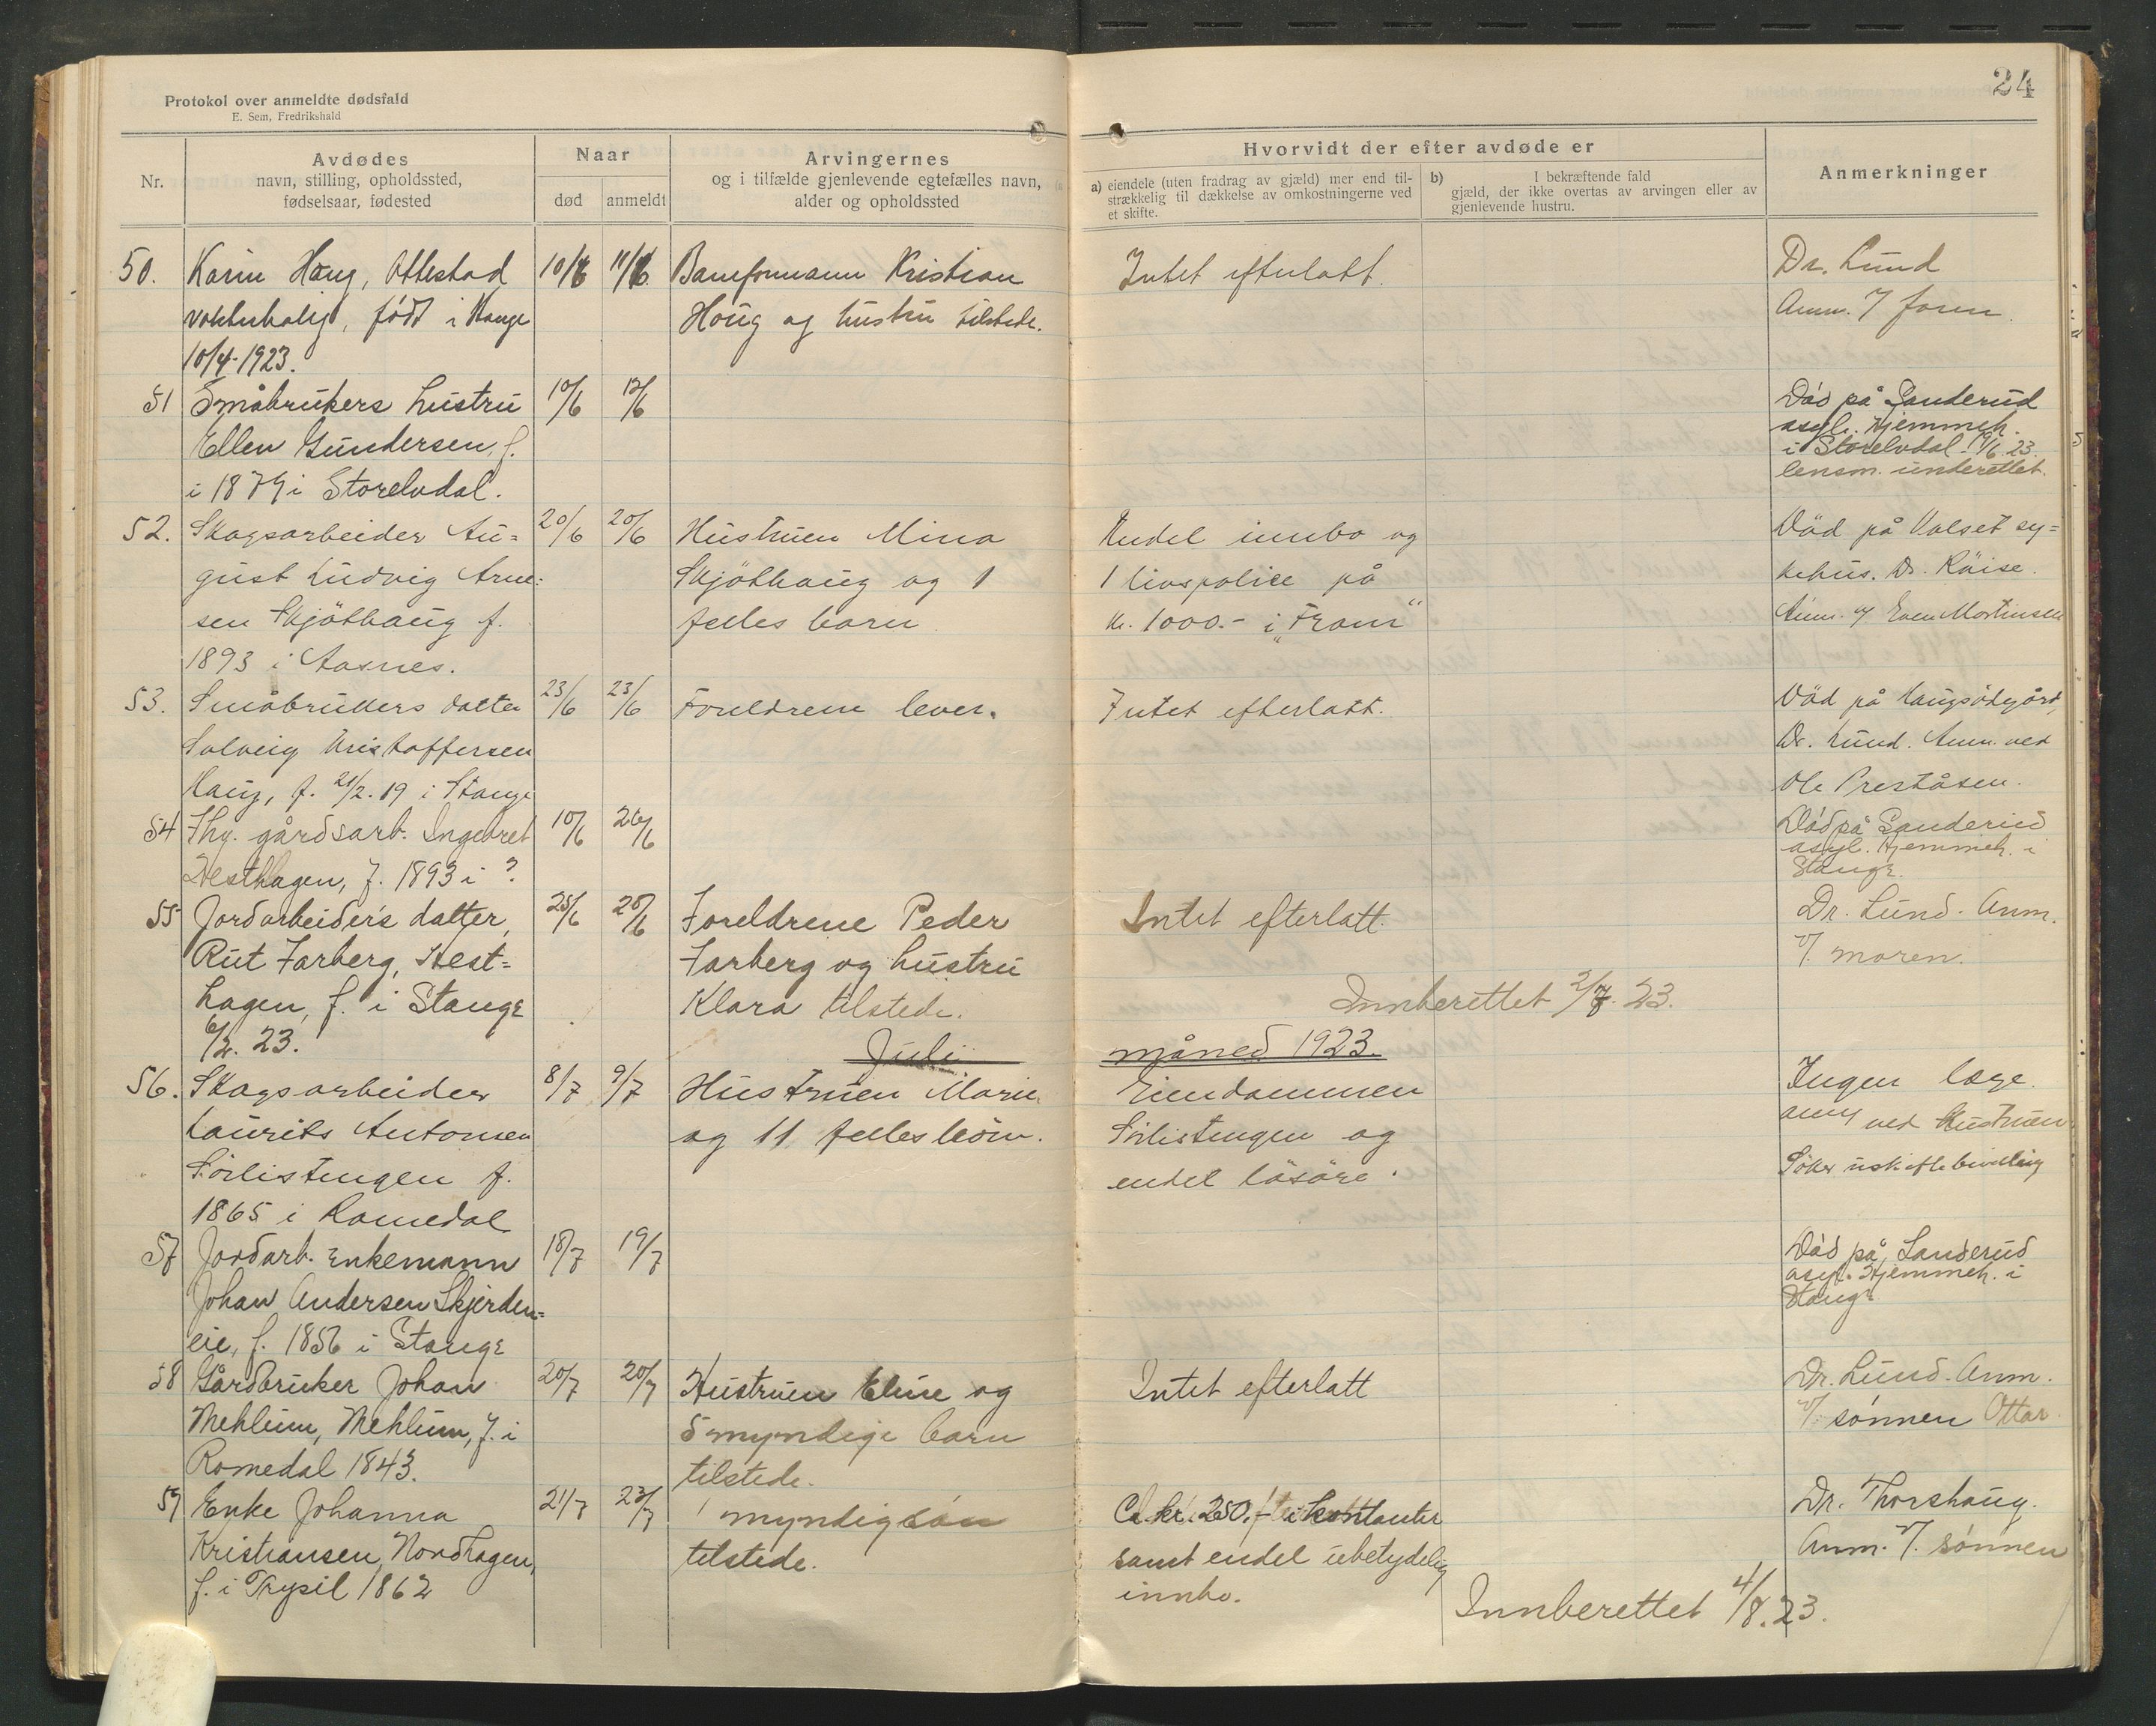 24
Protokol over anmeldte dødsfald
E. Sem, Fredrikshald
Nr.
Avdødes
navn, stilling, opholdssted,
fødselsaar, fødested
Naar
død
anmeldt
Arvingernes
og i tilfælde gjenlevende egtefælles navn,
alder og opholdssted
Hvorvidt der efter avdøde er
a) eiendele (uten fradrag av gjæld) mer end til-
strækkelig til dækkelse av omkostningerne ved
et skifte.
b) I bekræftende fald
gjæld, der ikke overtas av arvingen eller av
gjenlevende hustru.
Anmerkninger
50. Karin Haug, Ottestad 10/6 11/6 Baneformann Kristian Intet efterlatt. Dr. Lund
født i Stange Haug og hustru tilstede. Anm. v/ faren.
10/4-1923.
51 Småbrukers hustru 10/6 12/6 Død på Sanderud
Ellen Gundersen, f. asyl. Hjemmeh.
i 1879 i Storelvdal. i Storelvdal. 19/6.23.
lensm. underettet.
52. Skogsarbeider Au= 20/6 20/6 Hustruen Mina Endel innbo og Död på Valset sy=
gust Ludvig Arne= Skjöthaug og 1 1 livspolice på kehus. Dr. Röise.
sen Skjöthaug f. felles barn kr. 1000.- i „Fram“ Anm. v/ Even Mortinsen
1893 i Aasnes.
53. Småbrukers datter 23/6 23/6 Foreldrene lever. Intet efterlatt. Död på Haugsödegård,
Solveig Kristoffersen Dr. Lund. Anm. ved
Haug, f. 21/2.19 i Stange Ole Preståsen.
54 Fhv. gårdsarb. Ingebret 10/6 26/6 Død på Sanderud
Hesthagen, f. 1893 i ? asyl. Hjemmeh. i
Stange.
55 Jordarbeiders datter, 25/6 26/6 Foreldrene Peder Intet efterlatt. Dr. Lund. Anm.
Rut Farberg, Hest= Farberg og hustru v/. moren.
hagen, f. i Stange Klara tilstede. Innberettet 2/7. 23.
6/2. 23.
Juli måned 1923.
56. Skogsarbeider 8/7 9/7 Hustruen Marie Eiendommen Ingen læge.
Laurits Antonsen og 11 felles börn. Sörlistengen og anm ved Hustruen
Sörlistengen f. endel lösöre. Söker uskiftebevilling
1865 i Romedal
57 Jordarb. Enkemann 18/7 19/7 Død på Sanderud
Johan Andersen Skjerden= asyl. Hjemmeh. i
eie, f. 1856 i Stange Stange
58 Gårdbruker Johan 20/7 20/7 Hustruen Eline og Intet efterlatt Dr. Lund. Anm.
Mehlum, Mehlum, f. i 5 myndige barn v/. sønnen Ottar.
Romedal 1843. tilstede.
59 Enke Johanna 21/7 23/7 1 myndig søn Ca. kr. 250.- i kontanter Dr. Thorshaug.
Kristiansen, Nordhagen, tilstede. samt endel ubetydelig Anm. v/. sønnen
f. i Trysil 1862 innbo.
Innberettet 4/8. 23.